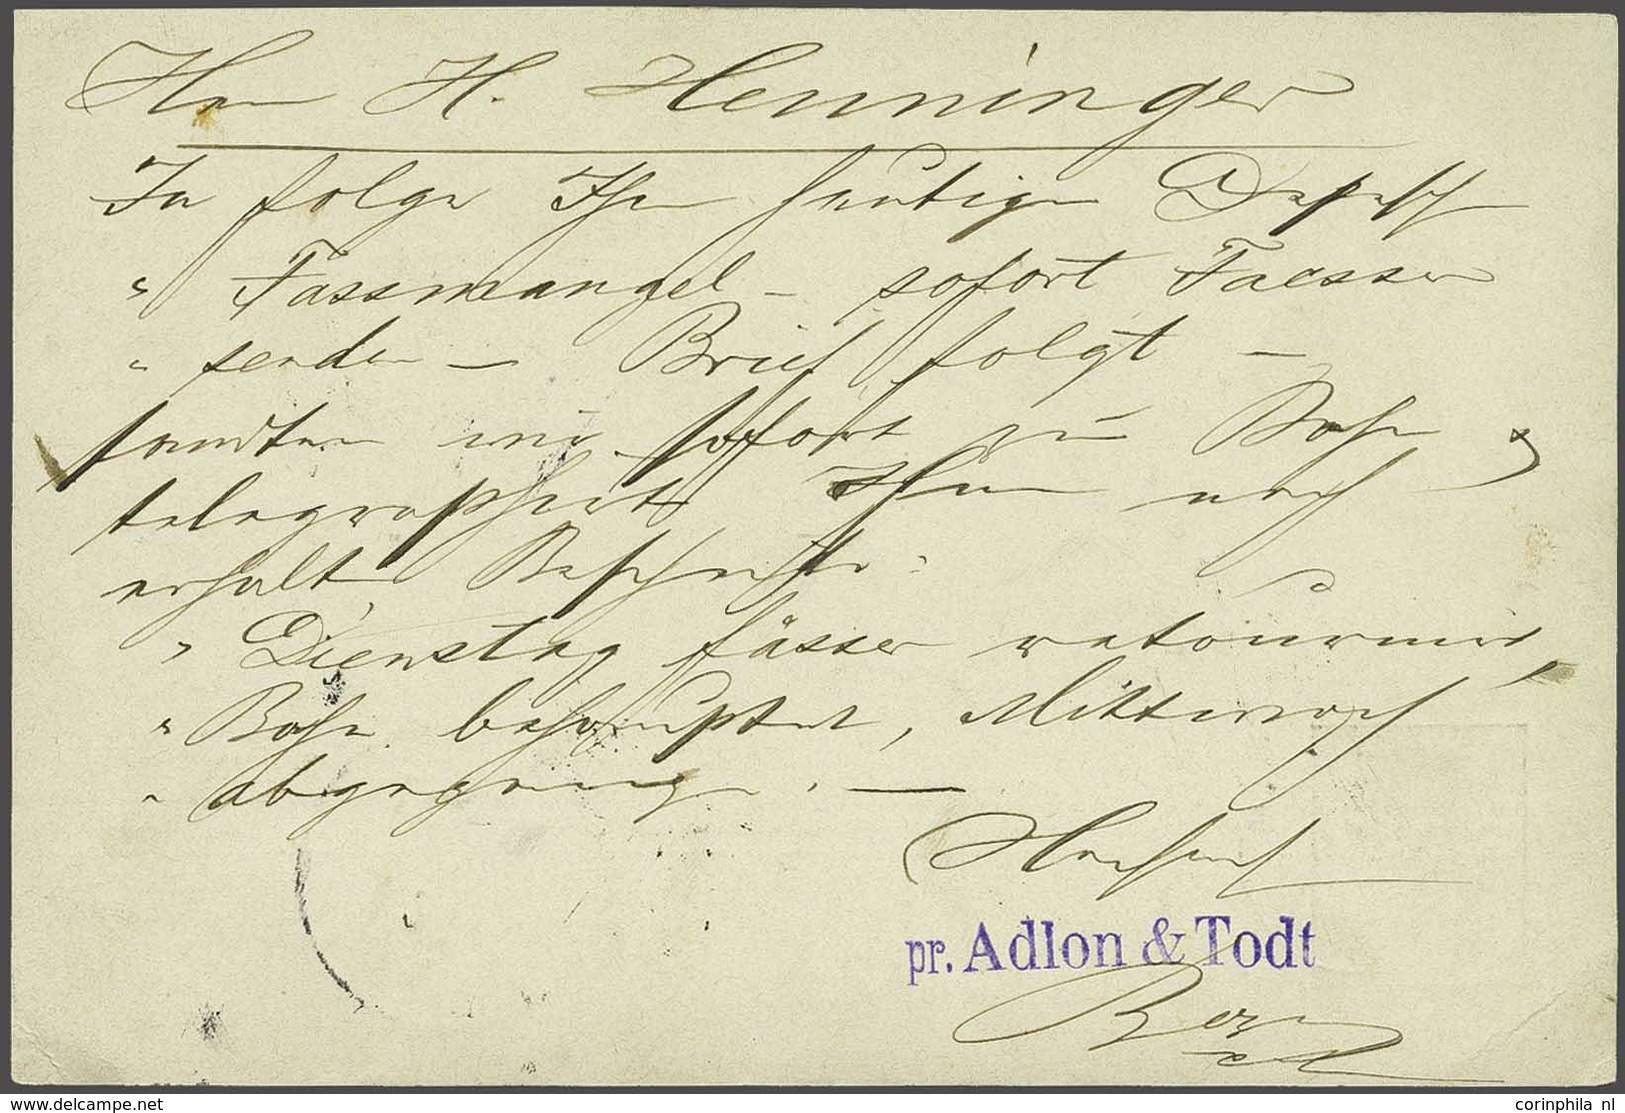 Hrn H. Henninger
In folge Ihrer heutigen Depesche
" Fassmangel – sofort Faesser
" senden – Brief folgt –
sandten wir sofort zur Bahn &
telegraphirte Ihnen nach
erhalt Bescheids:
" Dienstag Fässer retournirt,
" Bahn behauptet, Mittwoch
" abgegangen. —
Hochacht
pr. Adlon & Todt
www.delcampe.net
corinphila nl